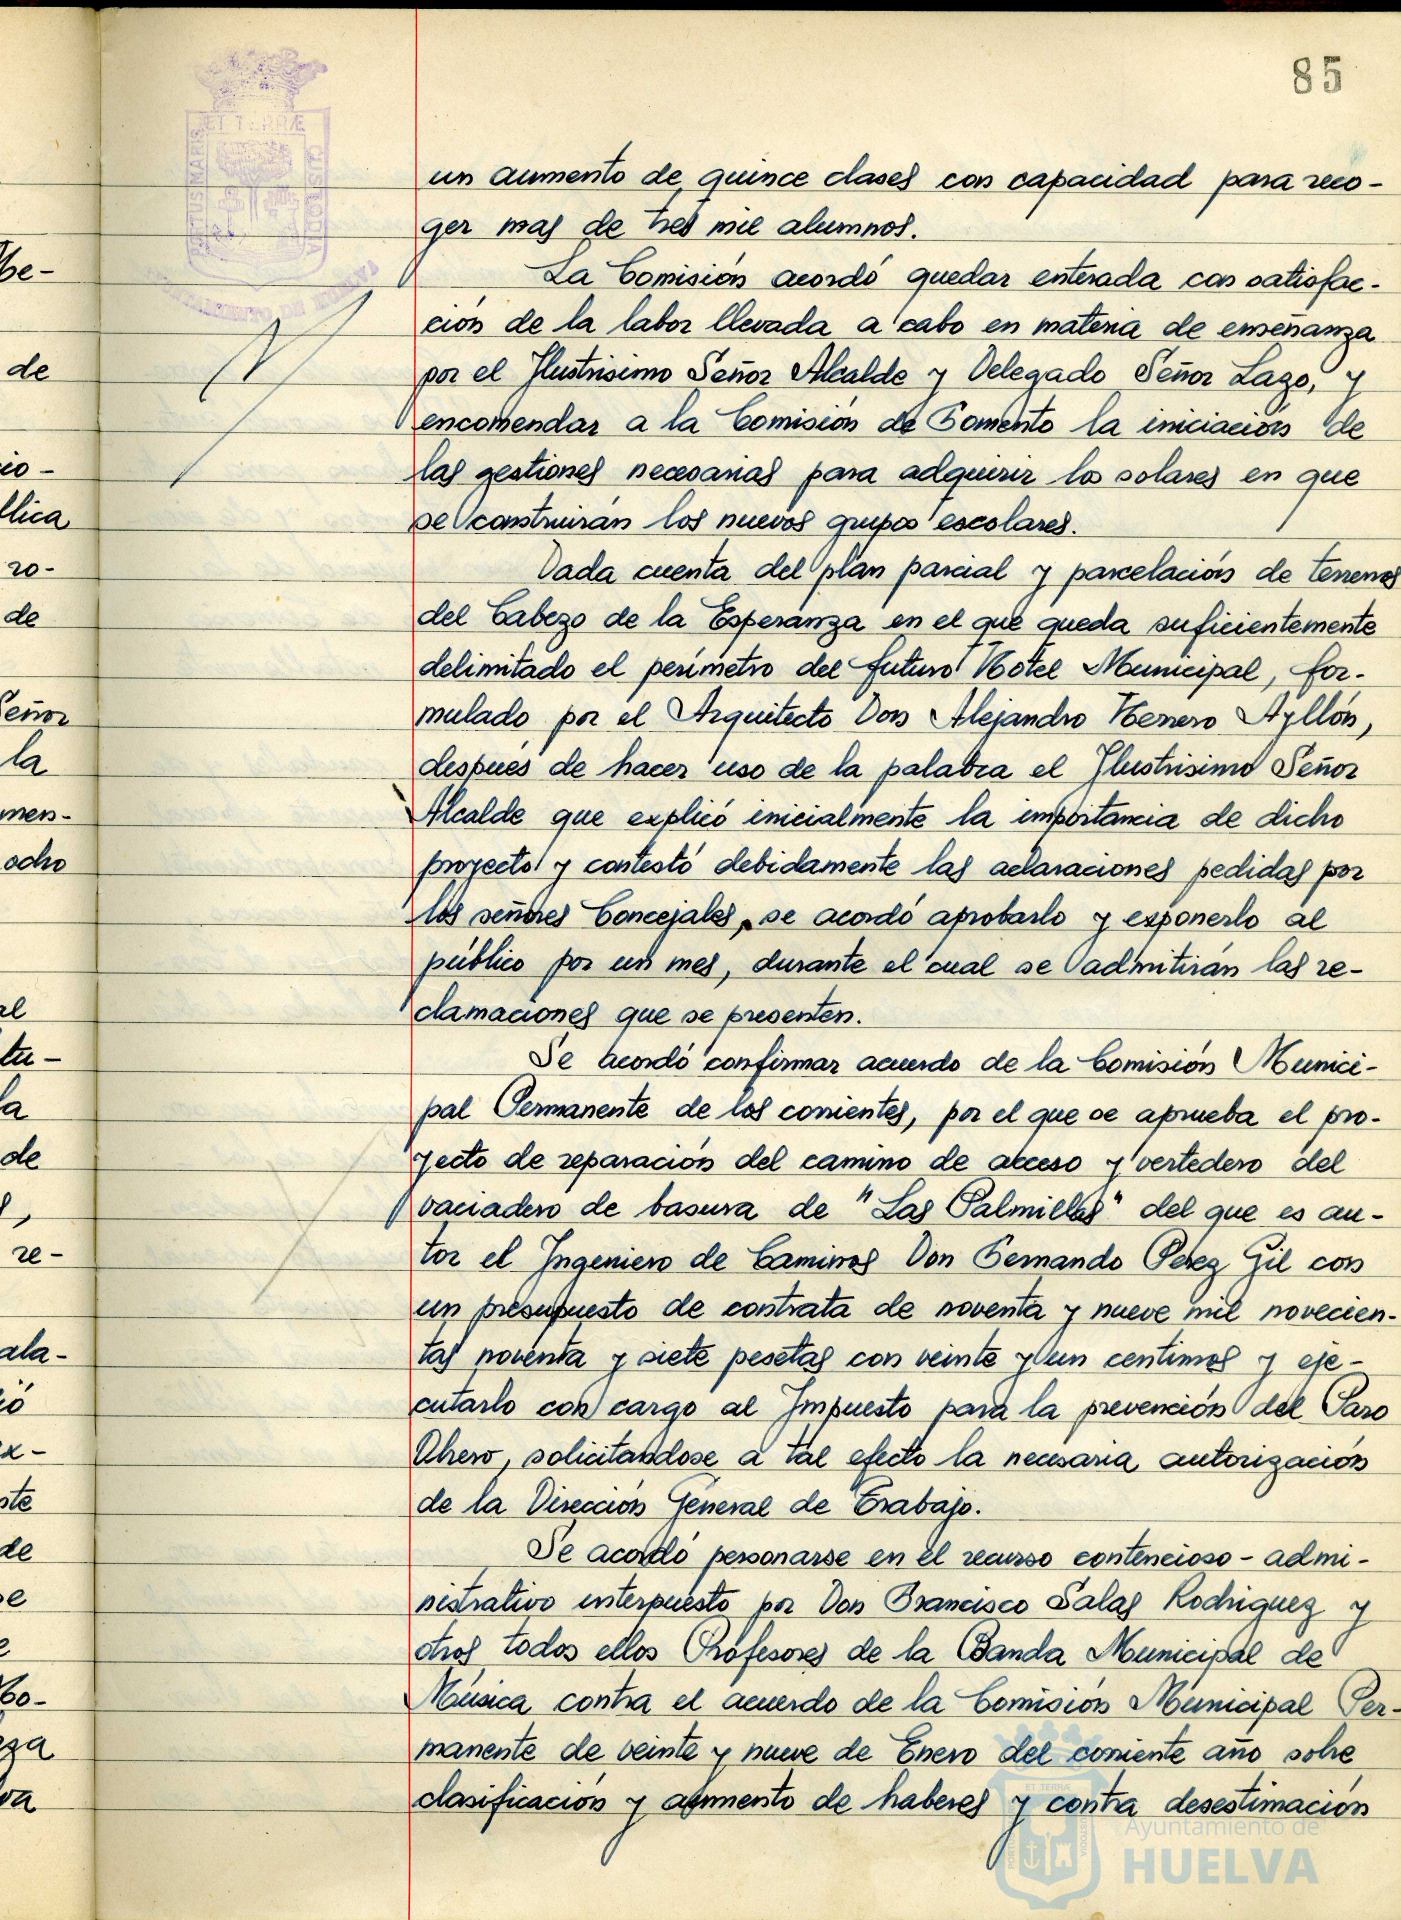 85
ET TERRÆ
PORTUS MARIS
CUSTODIA
AYUNTAMIENTO DE HUELVA
un aumento de quince clases con capacidad para reco-
ger mas de tres mil alumnos.
La Comisión acordó quedar enterada con satisfac-
ción de la labor llevada a cabo en materia de enseñanza
por el Ilustrisimo Señor Alcalde y Delegado Señor Lazo, y
encomendar a la Comisión de Fomento la iniciación de
las gestiones necesarias para adquirir los solares en que
se construirán los nuevos grupos escolares.
Dada cuenta del plan parcial y parcelación de terrenos
del Cabezo de la Esperanza en el que queda suficientemente
delimitado el perímetro del futuro Hotel Municipal, for-
mulado por el Arquitecto Don Alejandro Herrero Ayllón,
después de hacer uso de la palabra el Ilustrisimo Señor
Alcalde que explicó inicialmente la importancia de dicho
proyecto y contestó debidamente las aclaraciones pedidas por
los señores Concejales, se acordó aprobarlo y exponerlo al
público por un mes, durante el cual se admitirán las re-
clamaciones que se presenten.
Se acordó confirmar acuerdo de la Comisión Munici-
pal Permanente de los corrientes, por el que se aprueba el pro-
yecto de reparación del camino de acceso y vertedero del
vaciadero de basura de "Las Palmillas" del que es au-
tor el Ingeniero de Caminos Don Fernando Perez Gil con
un presupuesto de contrata de noventa y nueve mil novecien-
tas noventa y siete pesetas con veinte y un centimos y eje-
cutarlo con cargo al Impuesto para la prevención del Paro
Obrero, solicitandose a tal efecto la necesaria autorización
de la Dirección General de Trabajo.
Se acordó personarse en el recurso contencioso-admi-
nistrativo interpuesto por Don Francisco Salas Rodriguez y
otros todos ellos Profesores de la Banda Municipal de
Música contra el acuerdo de la Comisión Municipal Per-
manente de veinte y nueve de Enero del corriente año sobre
clasificación y aumento de haberes y contra desestimación
Ayuntamiento de
HUELVA